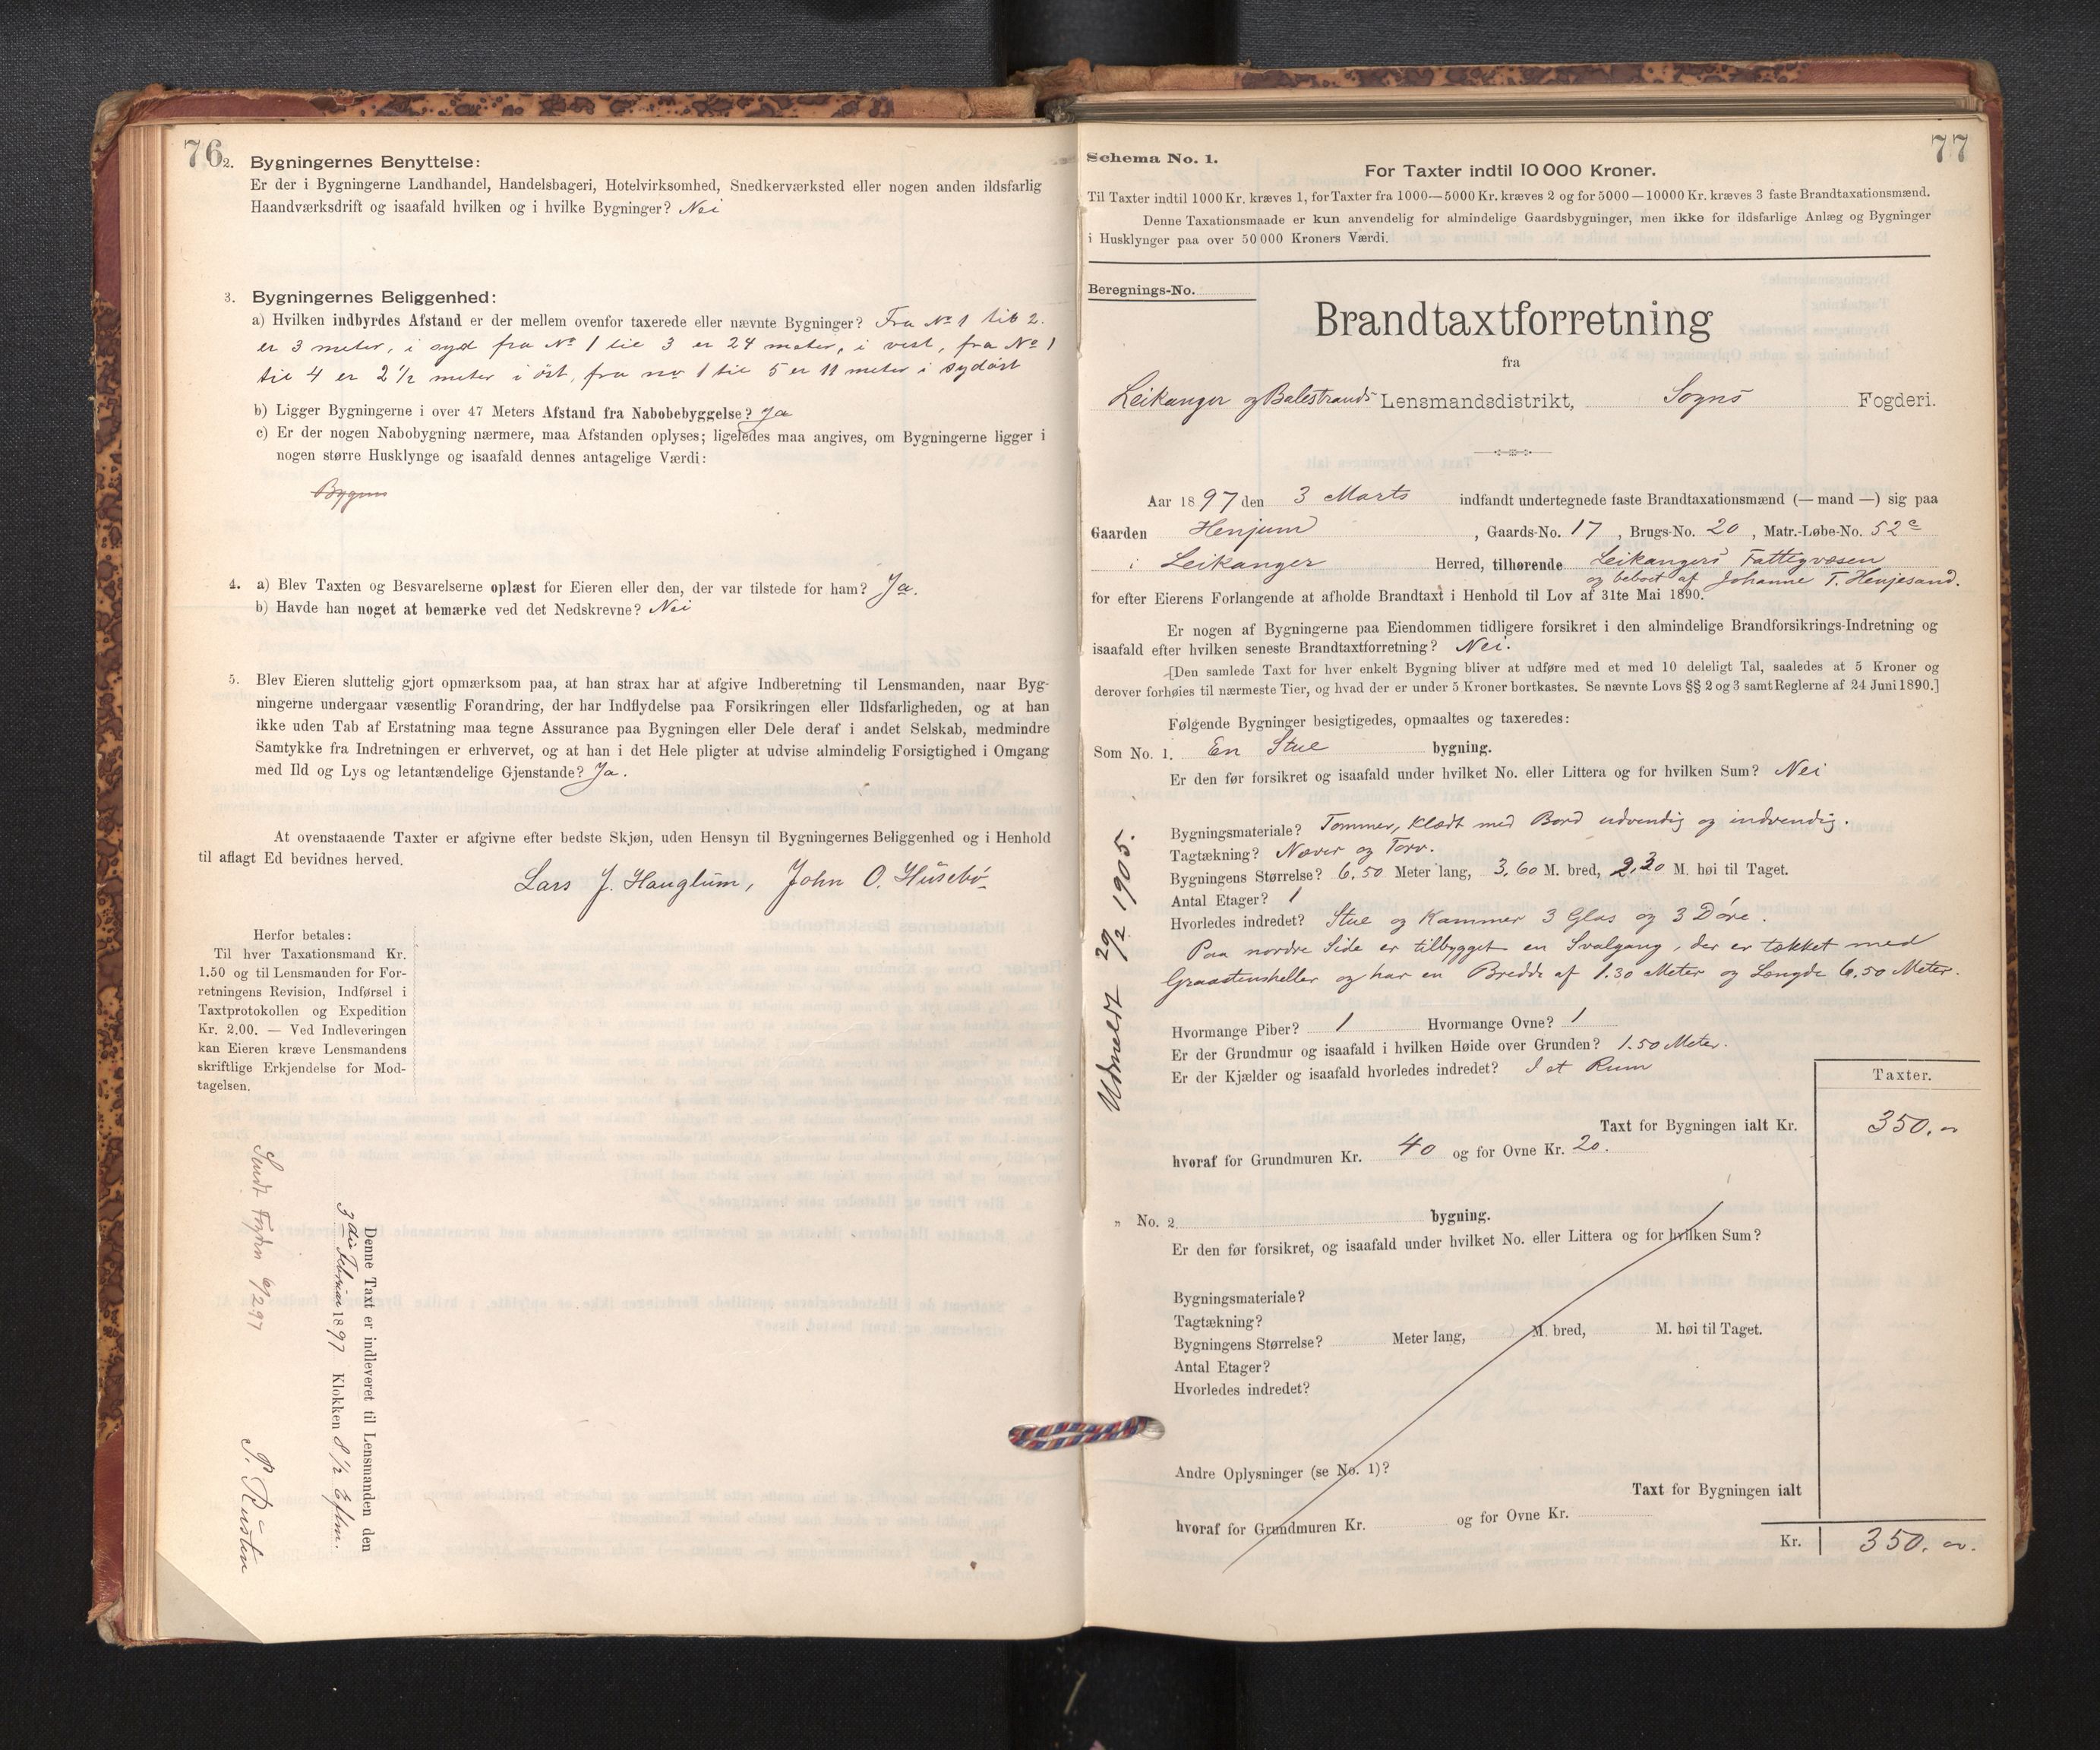 76
2. Bygningernes Benyttelse:
Er der i Bygningerne Landhandel, Handelsbageri, Hotelvirksomhed, Snedkerværksted eller nogen anden ildsfarlig
Haandværksdrift og isaafald hvilken og i hvilke Bygninger? Nei
3. Bygningernes Beliggenhed:
a) Hvilken indbyrdes Afstand er der mellem ovenfor taxerede eller nævnte Bygninger? Fra No 1 til 2.
er 3 meter, i syd fra No 1 til 3 er 24 meter, i vest, fra No 1
til 4 er 2 1/2 meter i öst, fra no 1 til 5 er 11 meter i sydöst
b) Ligger Bygningerne i over 47 Meters Afstand fra Nabobebyggelse? Ja
c) Er der nogen Nabobygning nærmere, maa Afstanden oplyses; ligeledes maa angives, om Bygningerne ligger i
nogen større Husklynge og isaafald dennes antagelige Værdi:
4. a) Blev Taxten og Besvarelserne oplæst for Eieren eller den, der var tilstede for ham? Ja.
b) Havde han noget at bemærke ved det Nedskrevne? Nei
5. Blev Eieren sluttelig gjort opmærksom paa, at han strax har at afgive Indberetning til Lensmanden, naar Byg-
ningerne undergaar væsentlig Forandring, der har Indflydelse paa Forsikringen eller Ildsfarligheden, og at han
ikke uden Tab af Erstatning maa tegne Assurance paa Bygningen eller Dele deraf i andet Selskab, medmindre
Samtykke fra Indretningen er erhvervet, og at han i det Hele pligter at udvise almindelig Forsigtighed i Omgang
med Ild og Lys og letantændelige Gjenstande? Ja.
At ovenstaaende Taxter er afgivne efter bedste Skjøn, uden Hensyn til Bygningernes Beliggenhed og i Henhold
til aflagt Ed bevidnes herved.
Lars J. Hauglum, John O. Husebö
Herfor betales:
Til hver Taxationsmand Kr.
1.50 og til Lensmanden for For-
retningens Revision, Indførsel i
Taxtprotokollen og Expedition
Kr. 2.00. — Ved Indleveringen
kan Eieren kræve Lensmandens
skriftlige Erkjendelse for Mod-
tagelsen.
Denne Taxt er indleveret til Lensmanden den
3die Februar 1897 Klokken 8 1/2 Eftm.
Sendt Fogden 6/2 97
77
Schema No. 1.
For Taxter indtil 10 000 Kroner.
Til Taxter indtil 1000 Kr. kræves 1, for Taxter fra 1000—5000 Kr. kræves 2 og for 5000—10000 Kr. kræves 3 faste Brandtaxationsmænd.
Denne Taxationsmaade er kun anvendelig for almindelige Gaardsbygninger, men ikke for ildsfarlige Anlæg og Bygninger
i Husklynger paa over 50 000 Kroners Værdi.
Beregnings-No.
Brandtaxtforretning
fra
Leikanger og Balestrands Lensmandsdistrikt, Sogns Fogderi.
Aar 1897 den 3 Marts indfandt undertegnede faste Brandtaxationsmænd (— mand —) sig paa
Gaarden Henjum, Gaards-No. 17, Brugs-No. 20, Matr.-Løbe-No. 52c
i Leikanger Herred, tilhørende Leikangers Fattigvæsen
og beboet af Johanne T. Henjesand.
for efter Eierens Forlangende at afholde Brandtaxt i Henhold til Lov af 31te Mai 1890.
Er nogen af Bygningerne paa Eiendommen tidligere forsikret i den almindelige Brandforsikrings-Indretning og
isaafald efter hvilken seneste Brandtaxtforretning? Nei.
[Den samlede Taxt for hver enkelt Bygning bliver at udføre med et med 10 deleligt Tal, saaledes at 5 Kroner og
derover forhøies til nærmeste Tier, og hvad der er under 5 Kroner bortkastes. Se nævnte Lovs §§ 2 og 3 samt Reglerne af 24 Juni 1890.]
Følgende Bygninger besigtigedes, opmaaltes og taxeredes:
Som No. 1. En Stue bygning.
Er den før forsikret og isaafald under hvilket No. eller Littera og for hvilken Sum? Nei
Bygningsmateriale? Tømmer, klædt med Bord udvendig og indvendig.
Tagtækning? Næver og Torv.
Bygningens Størrelse? 6.50 Meter lang, 3.60 M. bred, 2.30 M. høi til Taget.
Antal Etager? 1
Hvorledes indredet? Stue og Kammer 3 Glas og 3 Døre.
Paa nordre Side er tilbygget en Svalgang, der er tækket med
Graastensheller og har en Bredde af 1.30 Meter og Længde 6.50 Meter.
Hvormange Piber? 1 Hvormange Ovne? 1
Er der Grundmur og isaafald i hvilken Høide over Grunden? 1.50 Meter.
Er der Kjælder og isaafald hvorledes indredet? I et Rum
Taxter.
Taxt for Bygningen ialt Kr. 350.
hvoraf for Grundmuren Kr. 40 og for Ovne Kr. 20.
Udmeldt 29/2 1905.
" No. 2 bygning.
Er den før forsikret, og isaafald under hvilket No. eller Littera og for hvilken Sum?
Bygningsmateriale?
Tagtækning?
Bygningens Størrelse? Meter lang, M. bred, M. høi til Taget.
Antal Etager?
Hvorledes indredet?
Andre Oplysninger (se No. 1)?
Taxt for Bygningen ialt
hvoraf for Grundmuren Kr. og for Ovne Kr.
Kr. 350.